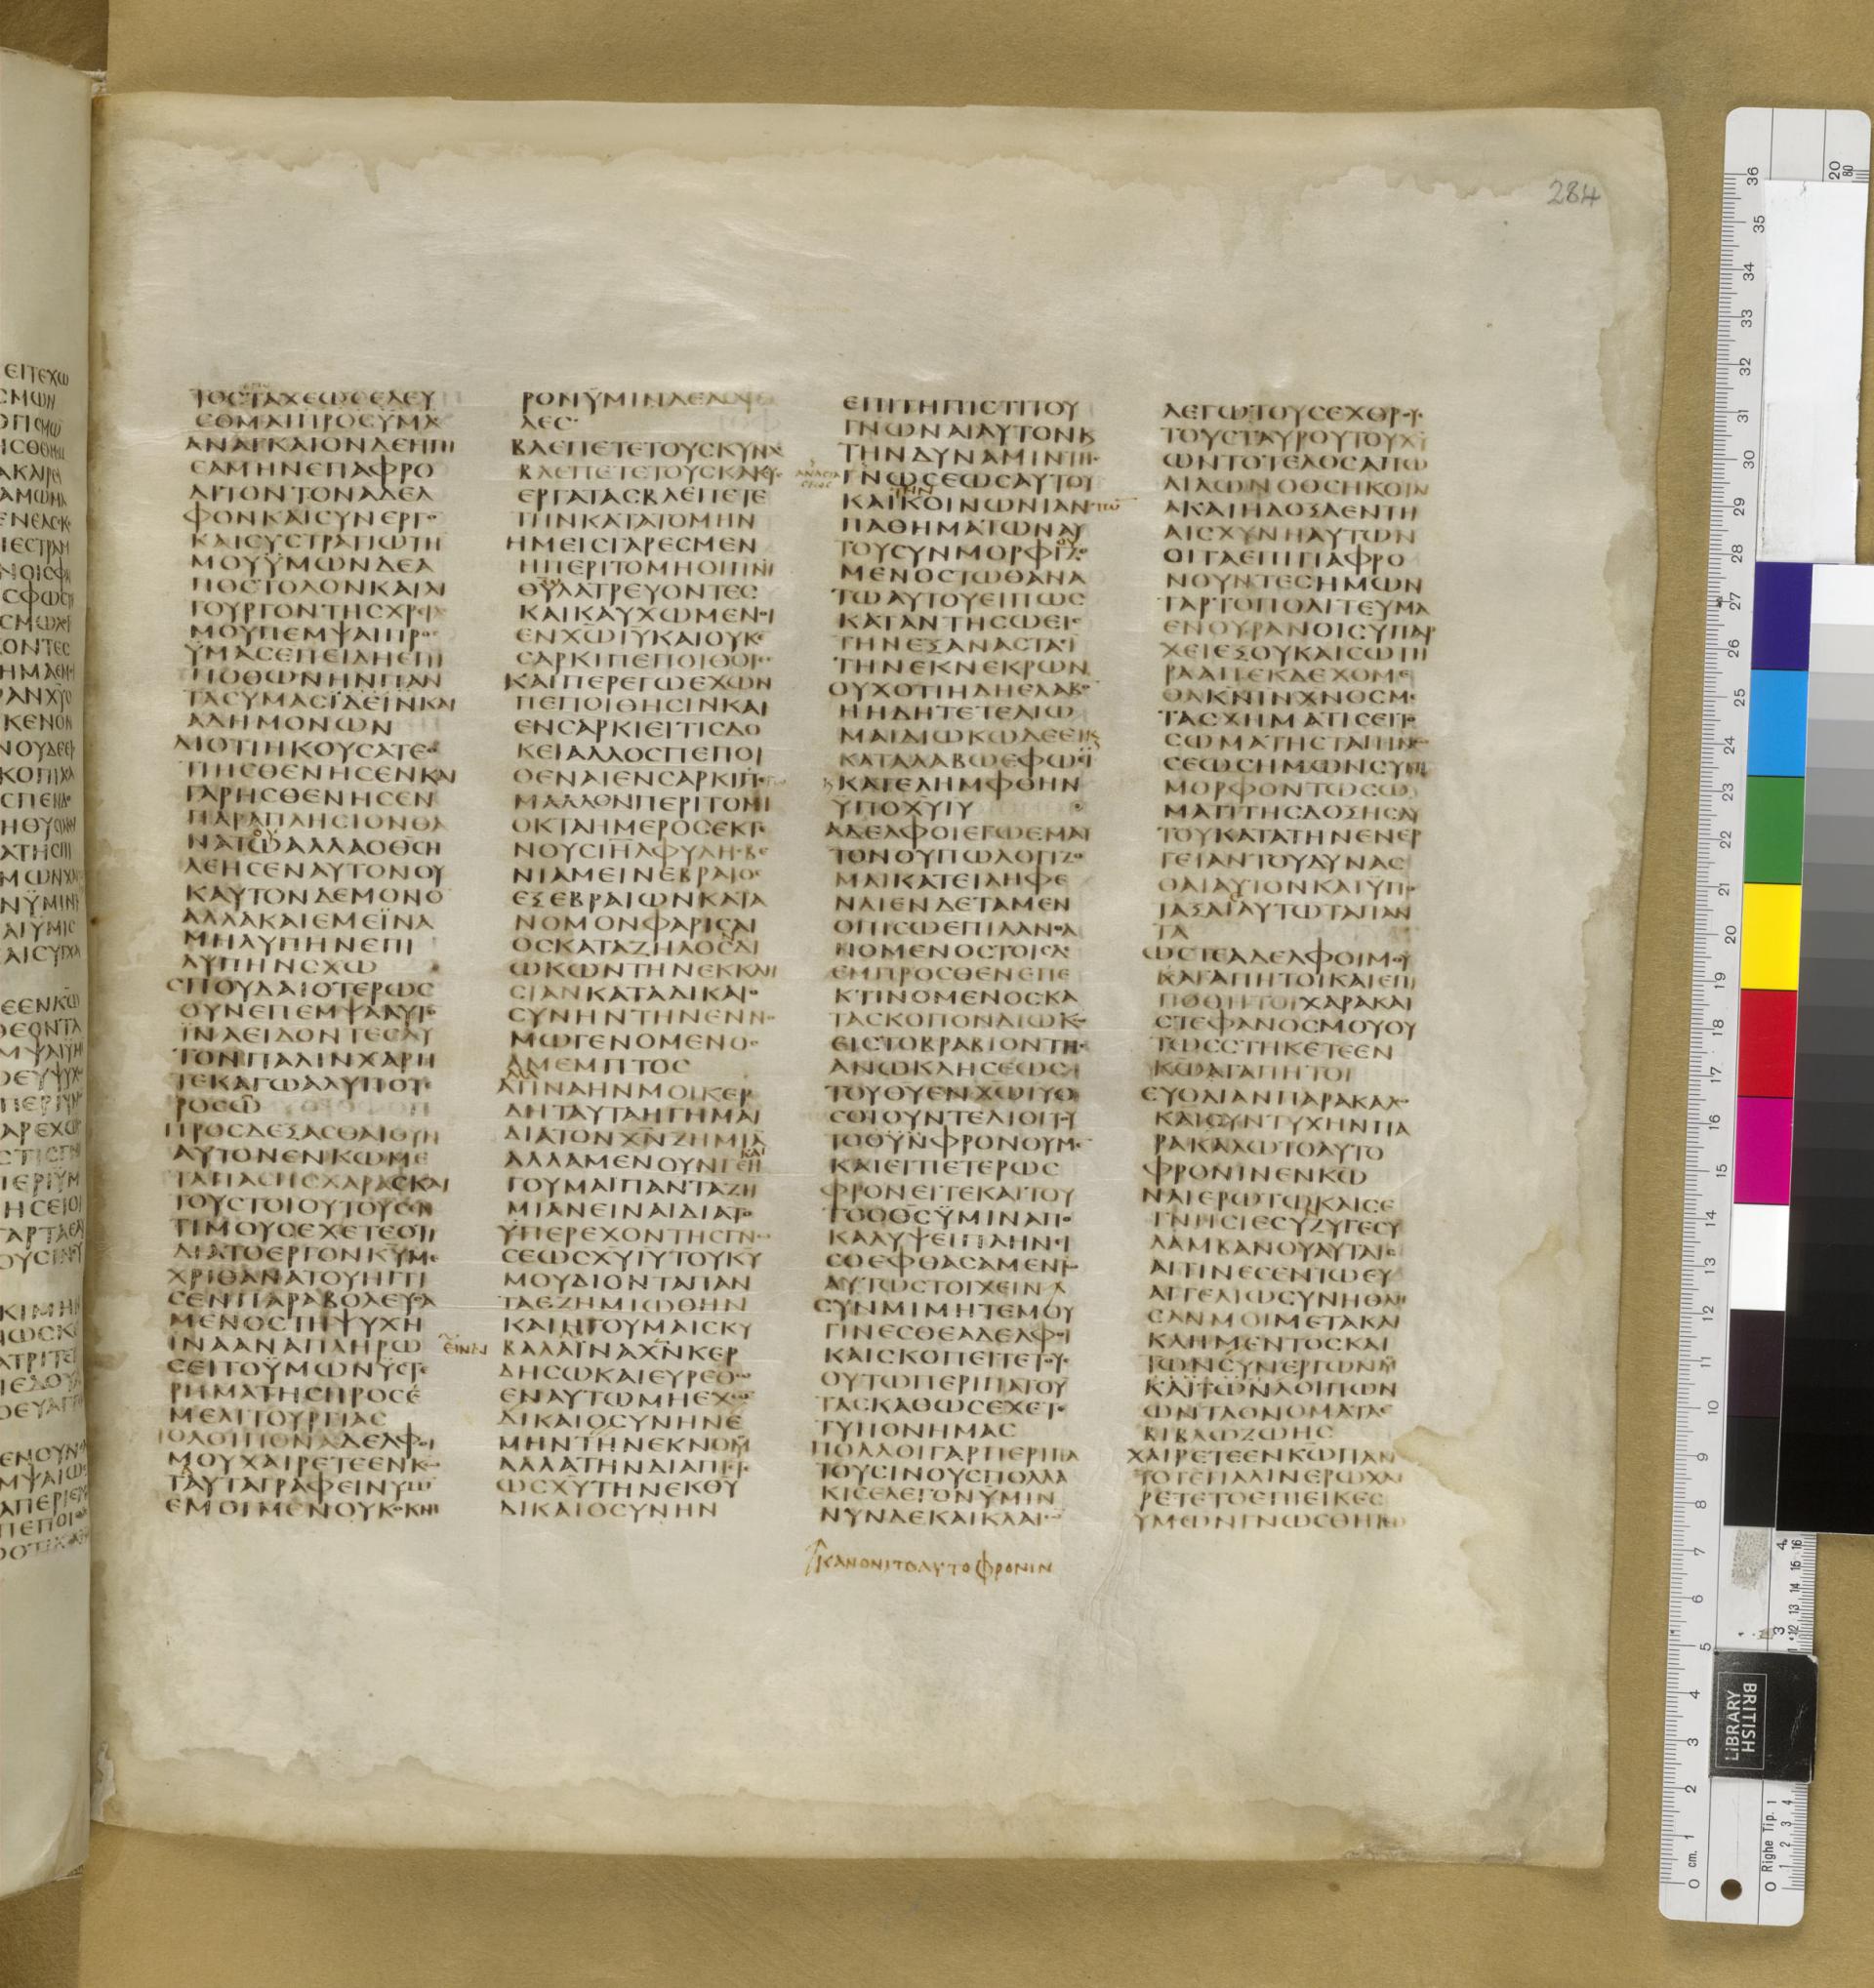 284
ΤΟΣΤΑΧΕΩΣΕΛΕΥ
ΣΟΜΑΙΠΡΟΣΫΜΑ
ΑΝΑΓΚΑΙΟΝΔΕΗΓΗ
ΣΑΜΗΝΕΠΑΦΡΟ
ΔΙΤΟΝΤΟΝΑΔΕΛ
ΦΟΝΚΑΙΣΥΝΕΡΓΟ
ΚΑΙΣΥΣΤΡΑΤΙΩΤΗ
ΜΟΥΫΜΩΝΔΕΑ
ΠΟΣΤΟΛΟΝΚΑΙΛΙ
ΤΟΥΡΓΟΝΤΗΣΧΡΕΙΑ
ΜΟΥΠΕΜΨΑΙΠΡΟΣ
ΫΜΑΣΕΠΕΙΔΗΕΠΙ
ΠΟΘΩΝΗΝΠΑΝ
ΤΑΣΥΜΑΣΪΔΕΪΝΚΑΙ
ΑΔΗΜΟΝΩΝ
ΔΙΟΤΙΗΚΟΥΣΑΤΕΟ
ΤΙΗΣΘΕΝΗΣΕΝΚΑΙ
ΓΑΡΗΣΘΕΝΗΣΕΝ
ΠΑΡΑΠΛΗΣΙΟΝΘΑ
ΝΑΤΩΑΛΛΑΟΘΣΗ
ΛΕΗΣΕΝΑΥΤΟΝΟΥ
ΚΑΥΤΟΝΔΕΜΟΝΟ
ΑΛΛΑΚΑΙΕΜΕΪΝΑ
ΜΗΛΥΠΗΝΕΠΙ
ΛΥΠΗΝΣΧΩ
ΣΠΟΥΔΑΙΟΤΕΡΩΣ
ΟΥΝΕΠΕΜΨΑΑΥΤΟ
ΪΝΑΕΙΔΟΝΤΕΣΑΥ
ΤΟΝΠΑΛΙΝΧΑΡΗ
ΤΕΚΑΓΩΑΛΥΠΟΤΕ
ΡΟΣΩ
ΠΡΟΣΔΕΞΑΣΘΑΙΟΥΝ
ΑΥΤΟΝΕΝΚΩΜΕ
ΤΑΠΑΣΗΣΧΑΡΑΣΚΑΙ
ΤΟΥΣΤΟΙΟΥΤΟΥΣΕΝ
ΤΙΜΟΥΣΕΧΕΤΕΟΤΙ
ΔΙΑΤΟΕΡΓΟΝΚΥΜΕ
ΧΡΙΘΑΝΑΤΟΥΗΓΓΙ
ΣΕΝΠΑΡΑΒΟΛΕΥΣΑ
ΜΕΝΟΣΤΗΨΥΧΗ
ΪΝΑΑΝΑΠΛΗΡΩ
ΣΕΙΤΟΫΜΩΝΫΣΤΕ
ΡΗΜΑΤΗΣΠΡΟΣΕ
ΜΕΛΙΤΟΥΡΓΙΑΣ
ΤΟΛΟΙΠΟΝΑΔΕΛΦΟΙ
ΜΟΥΧΑΙΡΕΤΕΕΝΚΩ
ΤΑΥΤΑΓΡΑΦΕΙΝΥΜΙ
ΕΜΟΙΜΕΝΟΥΚΟΚΝΗ
ΡΟΝΫΜΙΝΔΕΑΣΦΑ
ΛΕΣ
ΒΛΕΠΕΤΕΤΟΥΣΚΥΝΑΣ
ΒΛΕΠΕΤΕΤΟΥΣΚΑΚΟΥΣ
ΕΡΓΑΤΑΣΒΛΕΠΕΤΕ
ΤΗΝΚΑΤΑΤΟΜΗΝ
ΗΜΕΙΣΓΑΡΕΣΜΕΝ
ΗΠΕΡΙΤΟΜΗΟΙΠΝΙ
ΘΥΛΑΤΡΕΥΟΝΤΕΣ
ΚΑΙΚΑΥΧΩΜΕΝΟΙ
ΕΝΧΩΙΥΚΑΙΟΥΚΕ
ΣΑΡΚΙΠΕΠΟΙΘΟΤΕΣ
ΚΑΙΠΕΡΕΓΩΕΧΩΝ
ΠΕΠΟΙΘΗΣΙΝΚΑΙ
ΕΝΣΑΡΚΙΕΙΤΙΣΔΟ
ΚΕΙΑΛΛΟΣΠΕΠΟΙ
ΘΕΝΑΙΕΝΣΑΡΚΙΕΓΩ
ΜΑΛΛΟΝΠΕΡΙΤΟΜΗ
ΟΚΤΑΗΜΕΡΟΣΕΚΓΕ
ΝΟΥΣΙΗΛΦΥΛΗΣΒΕ
ΝΙΑΜΕΙΝΕΒΡΑΙΟΣ
ΕΞΕΒΡΑΙΩΝΚΑΤΑ
ΝΟΜΟΝΦΑΡΙΣΑΙ
ΟΣΚΑΤΑΖΗΛΟΣΔΙ
ΩΚΩΝΤΗΝΕΚΚΛΗ
ΣΙΑΝΚΑΤΑΔΙΚΑΙΟ
ΣΥΝΗΝΤΗΝΕΝΝΟ
ΜΩΓΕΝΟΜΕΝΟΣ
ΑΜΕΜΠΤΟΣ
ΑΤΙΝΑΗΝΜΟΙΚΕΡ
ΔΗΤΑΥΤΑΗΓΗΜΑΙ
ΔΙΑΤΟΝΧΝΖΗΜΙΑ
ΑΛΛΑΜΕΝΟΥΝΓΕΗ
ΓΟΥΜΑΙΠΑΝΤΑΖΗ
ΜΙΑΝΕΙΝΑΙΔΙΑΤΟ
ΫΠΕΡΕΧΟΝΤΗΣΓΝΩ
ΣΕΩΣΧΥΙΥΤΟΥΚΥ
ΜΟΥΔΙΟΝΤΑΠΑΝ
ΤΑΕΖΗΜΙΩΘΗΝ
ΚΑΙΗΓΟΥΜΑΙΣΚΥ
ΕΙΝΑΙ
ΒΑΛΑΪΝΑΧΝΚΕΡ
ΔΗΣΩΚΑΙΕΥΡΕΘΩ
ΕΝΑΥΤΩΜΗΕΧΩΝ
ΔΙΚΑΙΟΣΥΝΗΝΕ
ΜΗΝΤΗΝΕΚΝΟΜΟΥ
ΑΛΛΑΤΗΝΔΙΑΠΙΣ
ΩΣΧΥΤΗΝΕΚΘΥ
ΔΙΚΑΙΟΣΥΝΗΝ
ΕΠΙΤΗΠΙΣΤΙΤΟΥ
ΓΝΩΝΑΙΑΥΤΟΝΚ
ΤΗΝΔΥΝΑΜΙΝΤΗΣ
ΑΝΑΣΤΑ
ΣΕΩΣ
ΓΝΩΣΕΩΣΑΥΤΟΥ
ΤΗΝ
ΚΑΙΚΟΙΝΩΝΙΑΝΤΩ
ΠΑΘΗΜΑΤΩΝΑΥ
ΤΟΥΣΥΝΜΟΡΦΙΖΟ
ΜΕΝΟΣΤΩΘΑΝΑ
ΤΩΑΥΤΟΥΕΙΠΩΣ
ΚΑΤΑΝΤΗΣΩΕΙΣ
ΤΗΝΕΞΑΝΑΣΤΑΣΙ
ΤΗΝΕΚΝΕΚΡΩΝ
ΟΥΧΟΤΙΗΔΗΕΛΑΒΟ
ΗΗΔΗΤΕΤΕΛΙΩ
ΜΑΙΔΙΩΚΩΔΕΕΙΚ
ΚΑΤΑΛΑΒΩΕΦΩΚΑΙ
ΚΑΤΕΛΗΜΦΘΗΝ
ΫΠΟΧΥΙΥ
ΑΔΕΛΦΟΙΕΓΩΕΜΑΥ
ΤΟΝΟΥΠΩΛΟΓΙΖΟ
ΜΑΙΚΑΤΕΙΛΗΦΕ
ΝΑΙΕΝΔΕΤΑΜΕΝ
ΟΠΙΣΩΕΠΙΛΑΝΘΑ
ΝΟΜΕΝΟΣΤΟΙΣΔΕ
ΕΜΠΡΟΣΘΕΝΕΠΕ
ΚΤΙΝΟΜΕΝΟΣΚΑ
ΤΑΣΚΟΠΟΝΔΙΩΚΩ
ΕΙΣΤΟΒΡΑΒΙΟΝΤΗΣ
ΑΝΩΚΛΗΣΕΩΣ
ΤΟΥΘΥΕΝΧΩΙΥΟ
ΣΟΙΟΥΝΤΕΛΙΟΙΤΟΥ
ΤΟΘΫΝΦΡΟΝΟΥΜΕ
ΚΑΙΕΙΤΙΕΤΕΡΩΣ
ΦΡΟΝΕΙΤΕΚΑΙΤΟΥ
ΤΟΟΘΣΫΜΙΝΑΠΟ
ΚΑΛΥΨΕΙΠΛΗΝΕΙ
ΣΟΕΦΘΑΣΑΜΕΝΤΩ
ΑΥΤΩΣΤΟΙΧΕΙΝ
ΣΥΝΜΙΜΗΤΕΜΟΥ
ΓΙΝΕΣΘΕΑΔΕΛΦΟΙ
ΚΑΙΣΚΟΠΕΙΤΕΤΟΥΣ
ΟΥΤΩΠΕΡΙΠΑΤΟΥ
ΤΑΣΚΑΘΩΣΕΧΕΤΕ
ΤΥΠΟΝΗΜΑΣ
ΠΟΛΛΟΙΓΑΡΠΕΡΙΠΑ
ΤΟΥΣΙΝΟΥΣΠΟΛΛΑ
ΚΙΣΕΛΕΓΟΝΥΜΙΝ
ΝΥΝΔΕΚΑΙΚΛΑΙΩ
ΚΑΝΟΝΙΤΟΑΥΤΟΦΡΟΝΙΝ
ΛΕΓΩΤΟΥΣΕΧΘΡΟΥ
ΤΟΥΣΤΑΥΡΟΥΤΟΥΧΥ
ΩΝΤΟΤΕΛΟΣΑΠΩ
ΛΙΑΩΝΟΘΣΗΚΟΙΛΙ
ΑΚΑΙΗΔΟΞΑΕΝΤΗ
ΑΙΣΧΥΝΗΑΥΤΩΝ
ΟΙΤΑΕΠΙΓΙΑΦΡΟ
ΝΟΥΝΤΕΣΗΜΩΝ
ΓΑΡΤΟΠΟΛΙΤΕΥΜΑ
ΕΝΟΥΡΑΝΟΙΣΥΠΑΡ
ΧΕΙΕΞΟΥΚΑΙΣΩΤΗ
ΡΑΑΠΕΚΔΕΧΟΜΕ
ΘΑΚΝΙΝΧΝΟΣΜΕ
ΤΑΣΧΗΜΑΤΙΣΕΙΤΟ
ΣΩΜΑΤΗΣΤΑΠΙΝΩ
ΣΕΩΣΗΜΩΝΣΥΜ
ΜΟΡΦΟΝΤΩΣΩ
ΜΑΤΙΤΗΣΔΟΞΗΣΑΥ
ΤΟΥΚΑΤΑΤΗΝΕΝΕΡ
ΓΕΙΑΝΤΟΥΔΥΝΑΣ
ΘΑΙΑΥΤΟΝΚΑΙΫΠΟ
ΤΑΞΑΙΑΥΤΩΤΑΠΑΝ
ΤΑ
ΩΣΤΕΑΔΕΛΦΟΙΜΟΥ
ΚΑΓΑΠΗΤΟΙΚΑΙΕΠΙ
ΠΟΘΗΤΟΙΧΑΡΑΚΑΙ
ΣΤΕΦΑΝΟΣΜΟΥΟΥ
ΤΩΣΣΤΗΚΕΤΕΕΝ
ΚΩΑΓΑΠΗΤΟΙ
ΕΥΟΔΙΑΝΠΑΡΑΚΑΛΩ
ΚΑΙΣΥΝΤΥΧΗΝΠΑ
ΡΑΚΑΛΩΤΟΑΥΤΟ
ΦΡΟΝΙΝΕΝΚΩ
ΝΑΙΕΡΩΤΩΚΑΙΣΕ
ΓΝΗΣΙΕΣΥΖΥΓΕΣΥ
ΛΑΜΒΑΝΟΥΑΥΤΑΙΣ
ΑΙΤΙΝΕΣΕΝΤΩΕΥ
ΑΓΓΕΛΙΩΣΥΝΗΘΛΗ
ΣΑΝΜΟΙΜΕΤΑΚΑΙ
ΚΛΗΜΕΝΤΟΣΚΑΙ
ΤΩΝΣΥΝΕΡΓΩΝΜ
ΚΑΙΤΩΝΛΟΙΠΩΝ
ΩΝΤΑΟΝΟΜΑΤΑΕ
ΒΙΒΛΩΖΩΗΣ
ΧΑΙΡΕΤΕΕΝΚΩΠΑΝ
ΤΟΤΕΠΑΛΙΝΕΡΩΧΑΙ
ΡΕΤΕΤΟΕΠΙΕΙΚΕΣ
ΥΜΩΝΓΝΩΣΘΗΤΩ